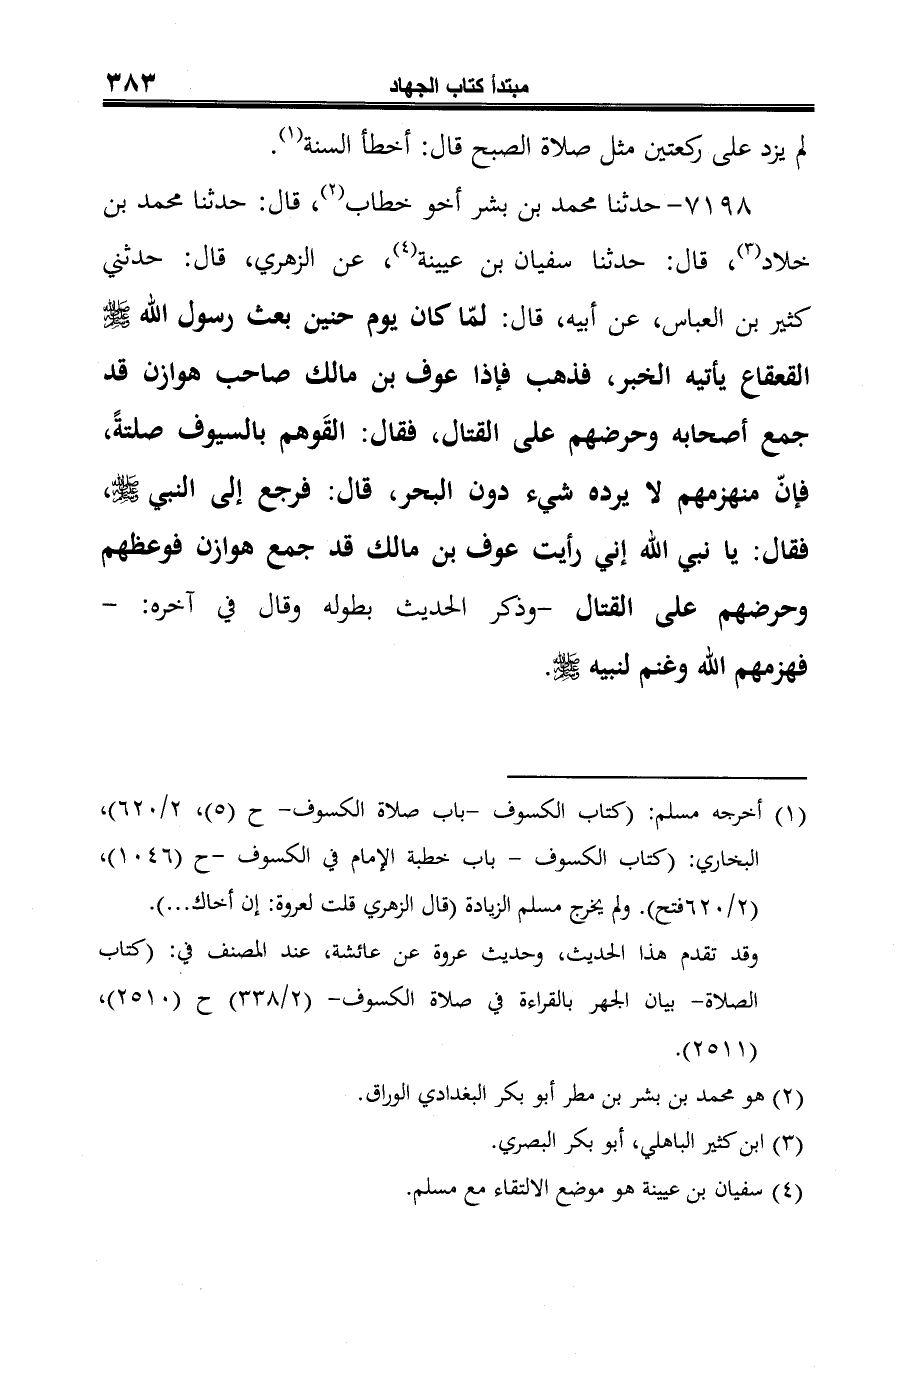 مبتدأ كتاب الجهاد ٣٨٣
لم يزد على ركعتين مثل صلاة الصبح قال: أخطأ السنة(١).
٧١٩٨- حدثنا محمد بن بشر أخو خطاب(٢)، قال: حدثنا محمد بن
خلاد(٣)، قال: حدثنا سفيان بن عيينة(٤)، عن الزهري، قال: حدثني
كثير بن العباس، عن أبيه، قال: لمّا كان يوم حنين بعث رسول الله ﷺ
القعقاع يأتيه الخبر، فذهب فإذا عوف بن مالك صاحب هوازن قد
جمع أصحابه وحرضهم على القتال، فقال: القَوهم بالسيوف صلتةً،
فإنّ منهزمهم لا يرده شيء دون البحر، قال: فرجع إلى النبي ﷺ،
فقال: يا نبي الله إني رأيت عوف بن مالك قد جمع هوازن فوعظهم
وحرضهم على القتال -وذكر الحديث بطوله وقال في آخره: -
فهزمهم الله وغنم لنبيه ﷺ.
(١) أخرجه مسلم: (كتاب الكسوف -باب صلاة الكسوف- ح (٥)، ٦٢٠/٢)،
البخاري: (كتاب الكسوف - باب خطبة الإمام في الكسوف -ح (١٠٤٦)،
(٦٢٠/٢فتح). ولم يخرج مسلم الزيادة (قال الزهري قلت لعروة: إن أخاك...).
وقد تقدم هذا الحديث، وحديث عروة عن عائشة، عند المصنف في: (كتاب
الصلاة- بيان الجهر بالقراءة في صلاة الكسوف- (٣٣٨/٢) ح (٢٥١٠)،
(٢٥١١).
(٢) هو محمد بن بشر بن مطر أبو بكر البغدادي الوراق.
(٣) ابن كثير الباهلي، أبو بكر البصري.
(٤) سفيان بن عيينة هو موضع الالتقاء مع مسلم.